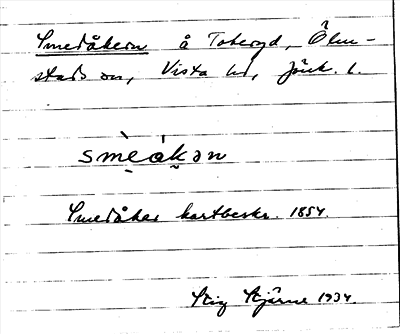 Smedåkern å Toteryd, Ölm-
stads sn, Vista hd, Jönk. l.
smèákən
Smedåker kartbeskr. 1854.
Stig Stjärne 1934.